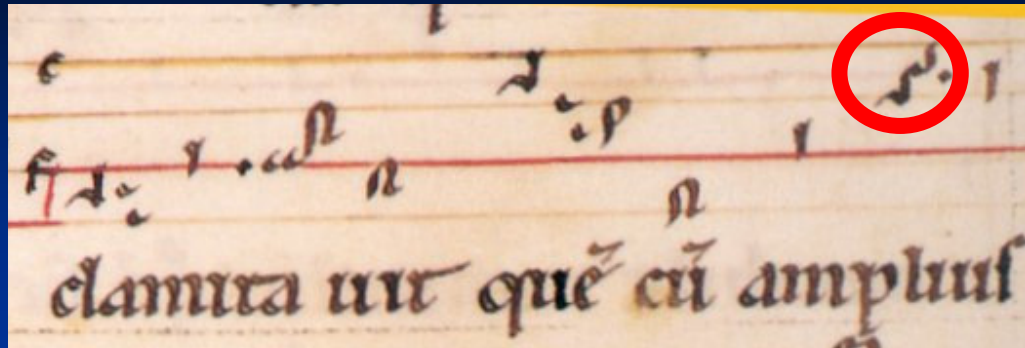 c
F
clamita uit quē cū amplius